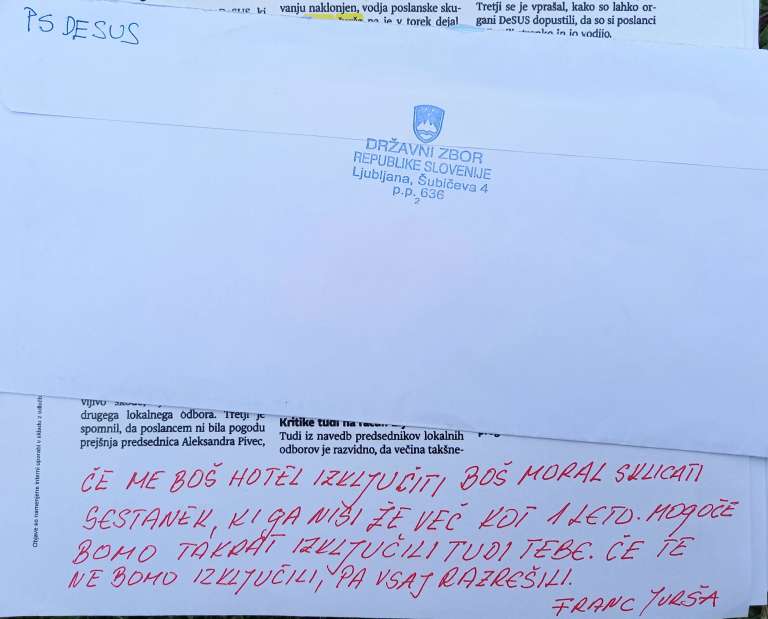 PS DESUS
vanju naklonjen, vodja poslanske sku-
je v torek dejal
Tretji se je vprašal, kako so lahko or-
gani DeSUS dopustili, da so si poslanci
in jo vodijo.
DRŽAVNI ZBOR
REPUBLIKE SLOVENIJE
Ljubljana, Šubičeva 4
p.p. 636
2
drugega lokalnega odbora. Tretji je
spomnil, da poslancem ni bila pogodu
prejšnja predsednica Aleksandra Pivec,
Kritike tudi na
Tudi iz navedb predsednikov lokalnih
odborov je razvidno, da večina takšne-
Objave so namenjene interni uporabi v skladu z
ČE ME BOŠ HOTEL IZKLJUČITI BOŠ MORAL SKLICATI
SESTANEK, KI GA NISI ŽE VEČ KOT 1 LETO. MOGOČE
BOMO TAKRAT IZKLJUČILI TUDI TEBE. ČE TE
NE BOMO IZKLJUČILI, PA VSAJ RAZREŠILI.
FRANC JURŠA